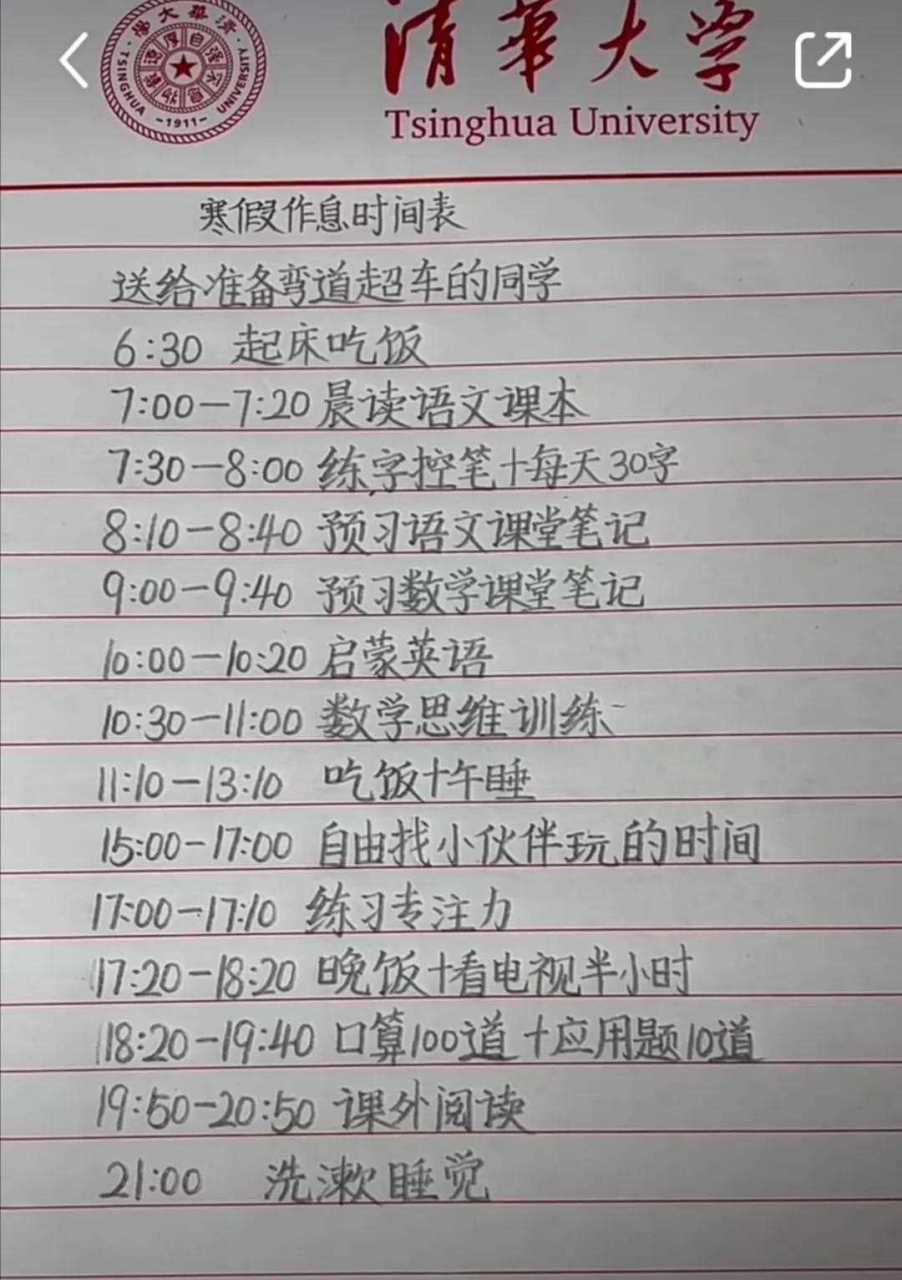 清華大學
Tsinghua University
TSINGHUA UNIVERSITY
-1911-
寒假作息时间表
送给准备弯道超车的同学
6:30 起床吃饭
7:00-7:20 晨读语文课本
7:30-8:00 练字控笔+每天30字
8:10-8:40 预习语文课堂笔记
9:00-9:40 预习数学课堂笔记
10:00-10:20 启蒙英语
10:30-11:00 数学思维训练
11:10-13:10 吃饭+午睡
15:00-17:00 自由找小伙伴玩的时间
17:00-17:10 练习专注力
17:20-18:20 晚饭+看电视半小时
18:20-19:40 口算100道+应用题10道
19:50-20:50 课外阅读
21:00 洗漱睡觉